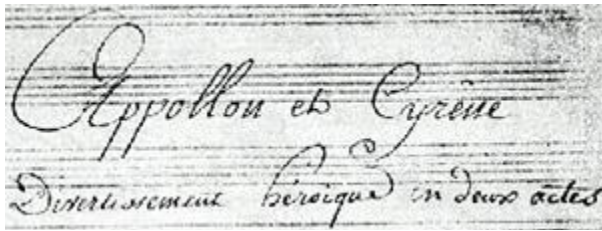 Appollon et Cyrène
Divertissement héroique en deux actes